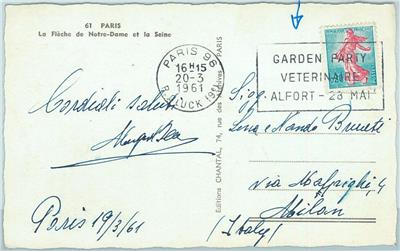 61 PARIS
La Flèche de Notre-Dame et la Seine
PARIS 96
16H15
20-3
1961
R. GLUCK (9E)
GARDEN PARTY
VETERINAIRE
ALFORT - 28 MAI
Cordiali saluti
Paris 19/3/61
Editions CHANTAL, 74, rue des Archives PARIS
Sigg.
e Nando Brunetti
via Malpighi, 4
Milan
(Italy)